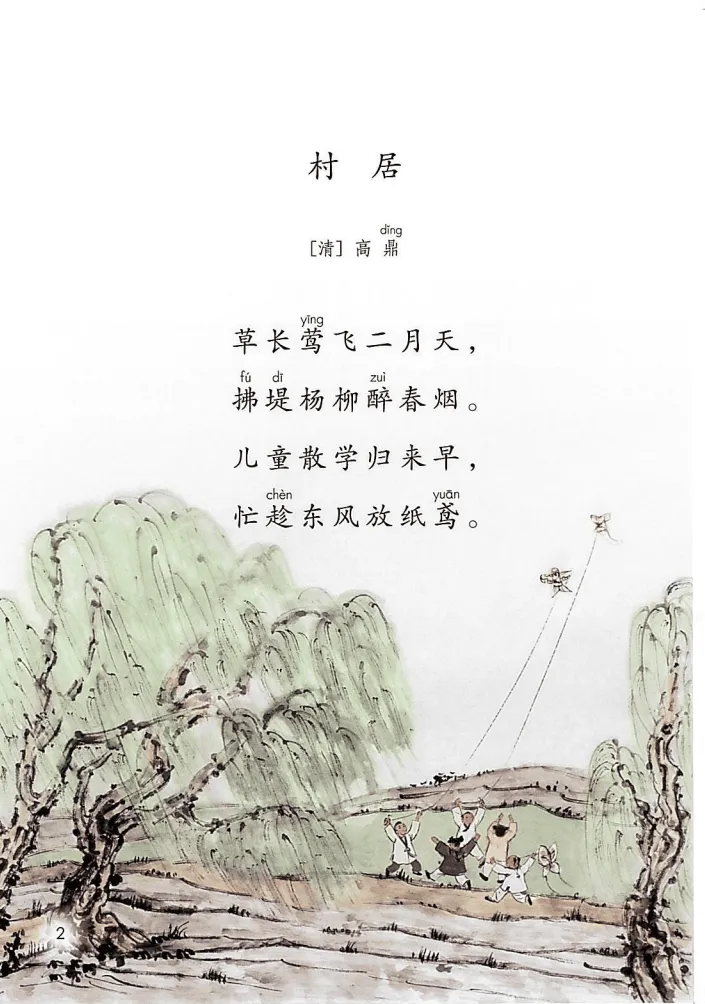 村 居
dǐng
[清] 高 鼎
yīng
草长莺飞二月天，
fú dī zuì
拂堤杨柳醉春烟。
儿童散学归来早，
chèn yuān
忙趁东风放纸鸢。
2